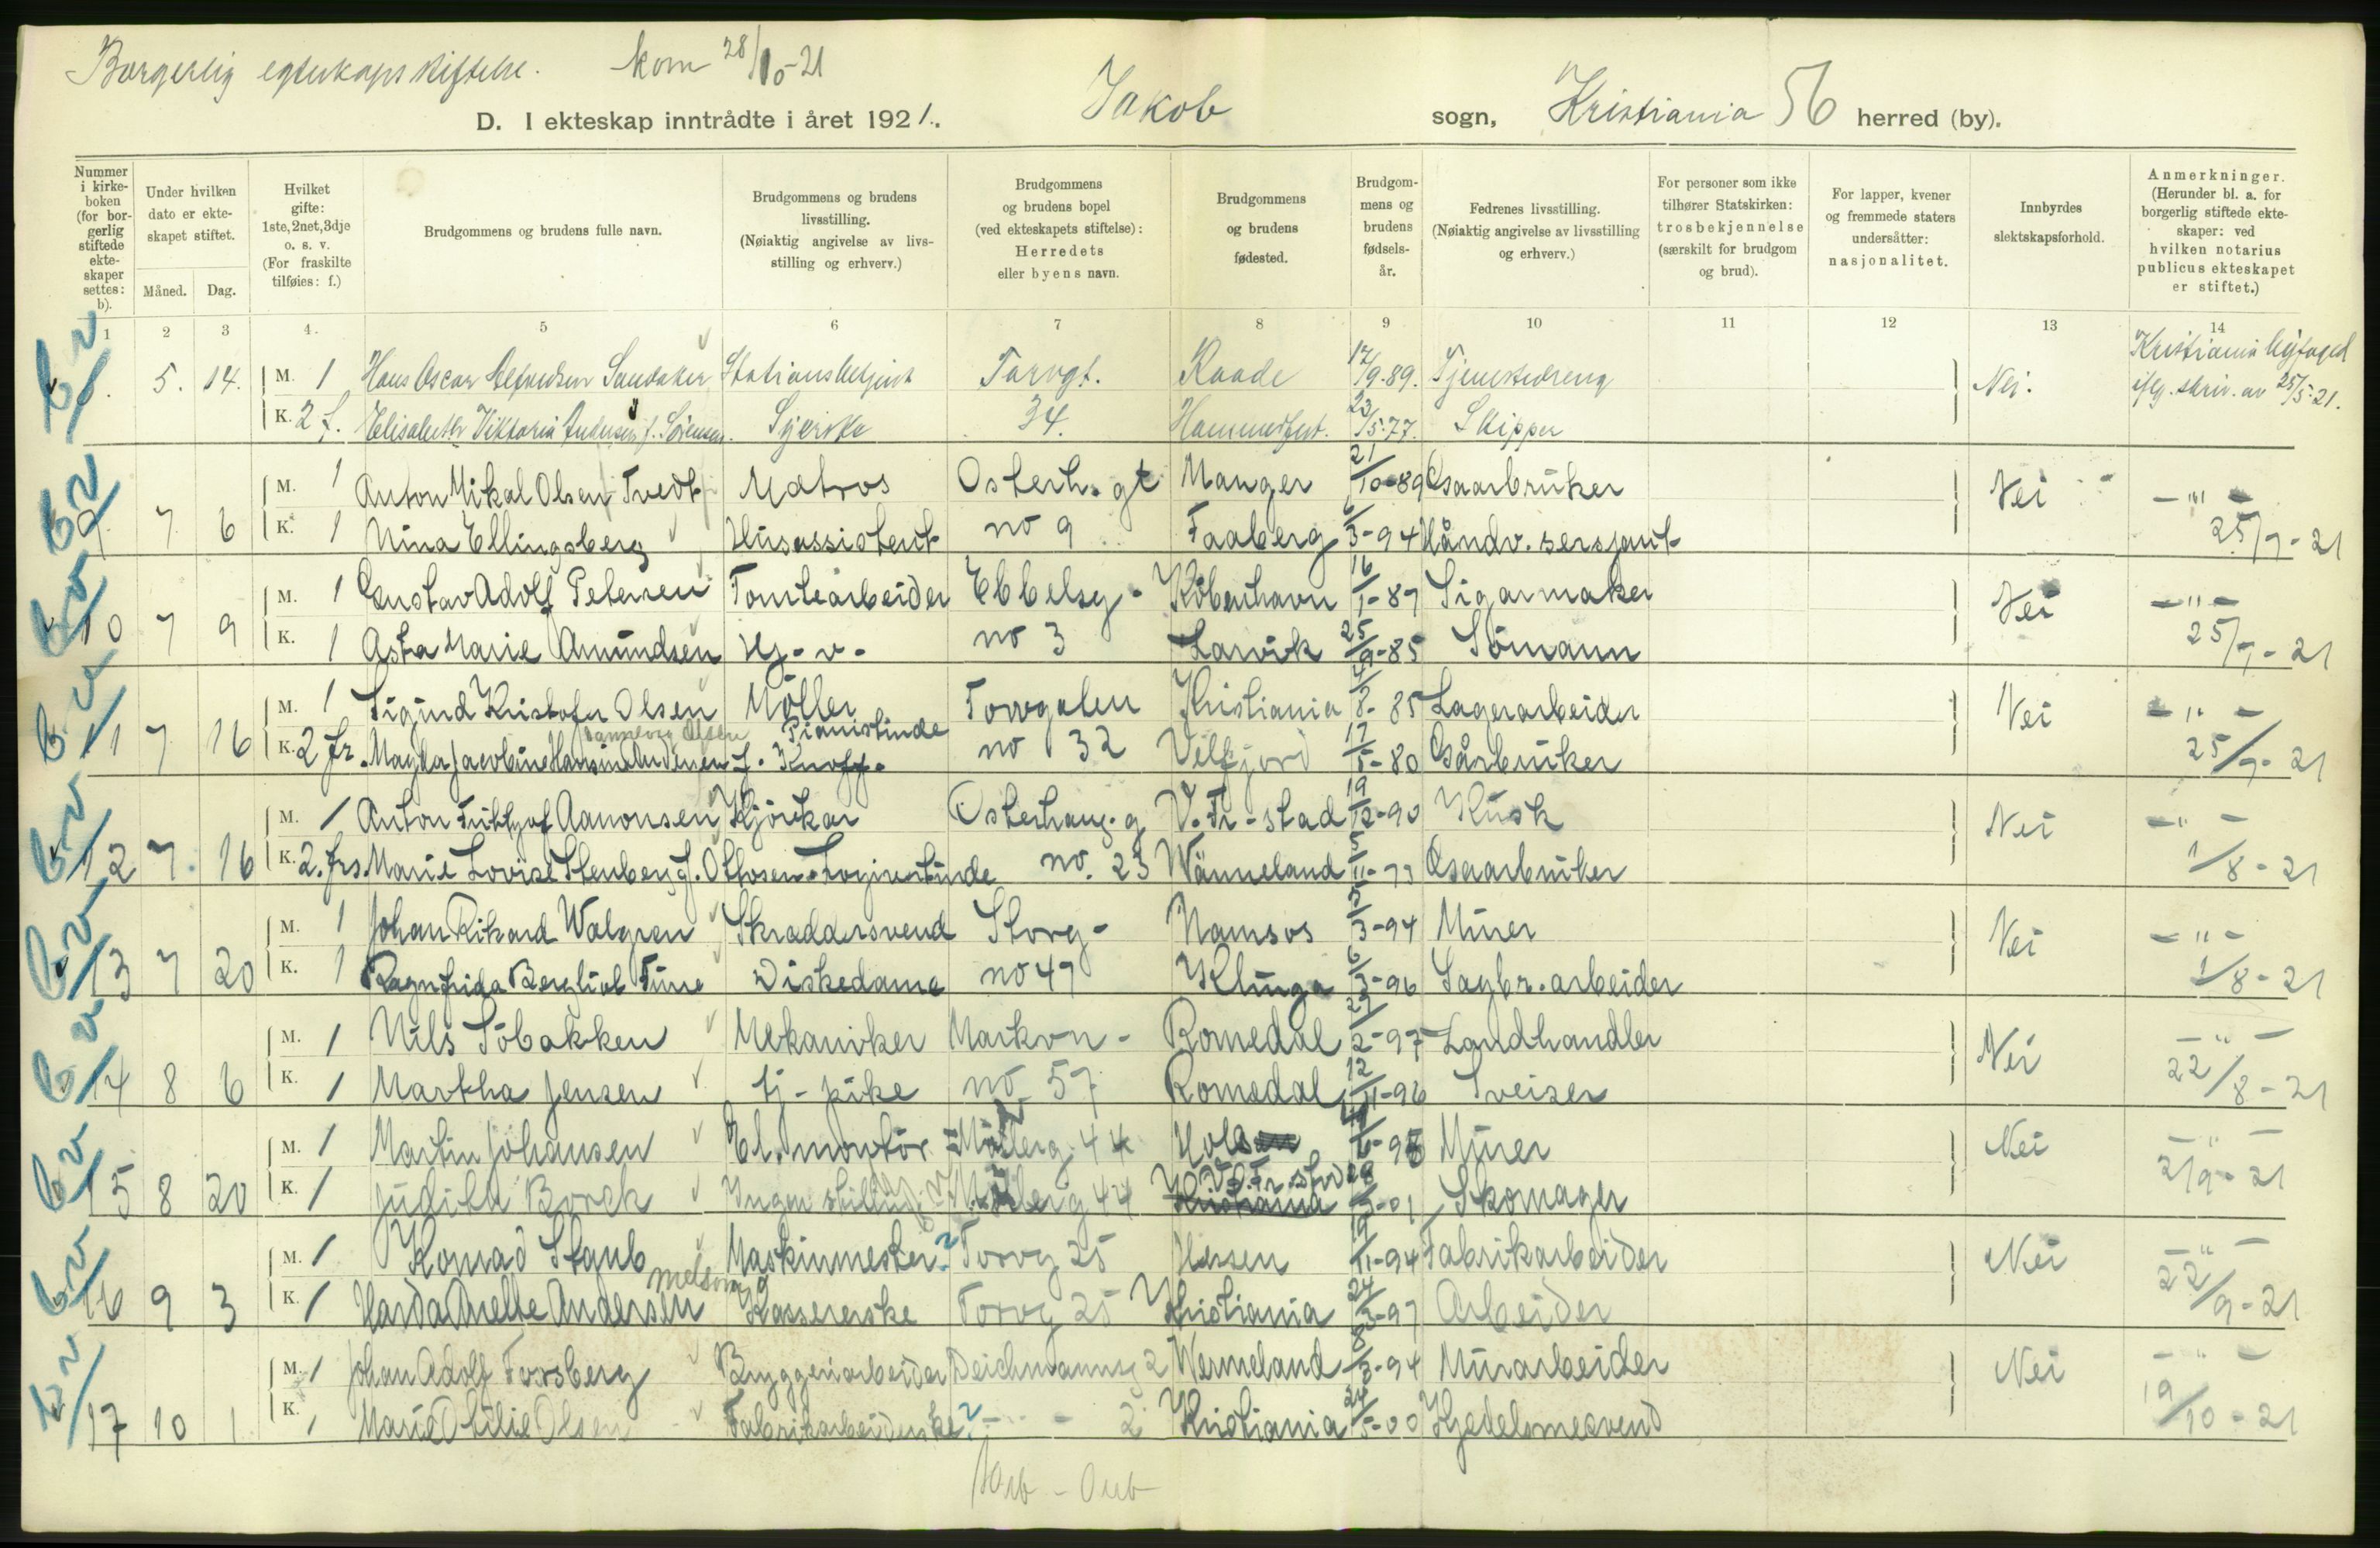 Borgerlig egteskapsstiftelse. kom 28/10-21
D. I ekteskap inntrådte i året 1921. Jakob sogn, Kristiania 56 herred (by).
Nummer i kirkeboken (for borgerlig stiftede ekteskaper settes: b).
Under hvilken dato er ekteskapet stiftet.
Måned. Dag.
Hvilket gifte: 1ste, 2net, 3dje o. s. v. (For fraskilte tilføies: f.)
Brudgommens og brudens fulle navn.
Brudgommens og brudens livsstilling. (Nøiaktig angivelse av livsstilling og erhverv.)
Brudgommens og brudens bopel (ved ekteskapets stiftelse): Herredets eller byens navn.
Brudgommens og brudens fødested.
Brudgommens og brudens fødselsår.
Fedrenes livsstilling. (Nøiaktig angivelse av livsstilling og erhverv.)
For personer som ikke tilhører Statskirken: trosbekjennelse (særskilt for brudgom og brud).
For lapper, kvener og fremmede staters undersåtter: nasjonalitet.
Innbyrdes slektskapsforhold.
Anmerkninger. (Herunder bl. a. for borgerlig stiftede ekteskaper: ved hvilken notarius publicus ekteskapet er stiftet.)
1 2 3 4. 5 6 7 8 9 10 11 12 13 14
5. 14. M. 1 Hans Oscar Sandaker Stationsbetjent Torvgt. Raade 17/9-89. Tjenestedreng Nei. Kristiania byfoged
K. 2 f. Elisabeth Viktoria Andersen f. Sörensen. Syerske 34. Hammerfest. 23/5-77. Skipper iflg. skriv. av 25/5-21.
9 7 6 M. 1 Anton Mikal Olsen Tvedt Matros Osterh. gt Manger 21/10-89 Gaarbruker Nei - " -
K. 1 Nina Ellingsberg Husassistent no 9 Faaberg 6/3-94 Håndv. sersjant 25/7-21
10 7 9 M. 1 Gustav Adolf Petersen Tomtearbeider Ebbelsg- Köbenhavn 16/1-87 Sigarmaker Nei - " -
K. 1 Asta Marie Amundsen Hj-v- no 3 Larvik 25/9-85 Sömann 25/7-21
11 7 16 M. 1 Sigurd Kristofer Olsen Möller Torvgaten Kristiania 4/8-85 Lagerarbeider Nei - " -
K. 2 fr. Magda Jacobine Andersen f. Knoff. Pianistinde no 32 Velfjord 17/5-80 Gårbruker 25/7-21
12 7. 16 M. 1 Anton Fritljof Aamonsen Kjörekar Osterhaug.g V. Fr-stad 19/12-90 Kusk Nei - " -
K. 2. frs. Marie Lovise Stenberg f. Ottosen no. 23 Wärmeland 5/11-73 Gaarbruker 1/8-21
13 7 20 M. 1 Johan Rikard Walgren Skraddersvend Storg- Namsos 5/3-94 Murer Nei - " -
K. 1 Ragnfrida Bergliot Diskedame no 47 Klinga 6/3-96 Sagbr. arbeider 1/8-21
14 8 6 M. 1 Nils Söbakken Mekaniker Markvn- Romedal 27/2-97 Landhandler Nei - " -
K. 1 Martha Jensen tj-pike no 57 Romedal 12/11-96 Sveiser 22/8-21
15 8 20 M. 1 Martin Johansen El. montör 44 Murer Nei - " -
K. 1 Judith Borck Ingen stilling 44 V. Fr. stad 28/9-01 Skomager 2/9-21
16 9 3 M. 1 Konrad Staub Maskinmester Torvg 25 Hessen 19/11-94 Fabrikarbeider Nei - " -
K. 1 Andersen Kassererske Torvg 25 Kristiania 24/3-97 Arbeider 22/9-21
17 10 1 M. 1 Johan Adolf Forsberg Bryggeriarbeider Deichmannsg 2 Wermeland 8/3-94 Murarbeider Nei - " -
K. 1 Marie Otilie Olsen Fabrikarbeiderske - - 2 Kristiania 24/5-00 Kjedelsmedsvend 19/10-21